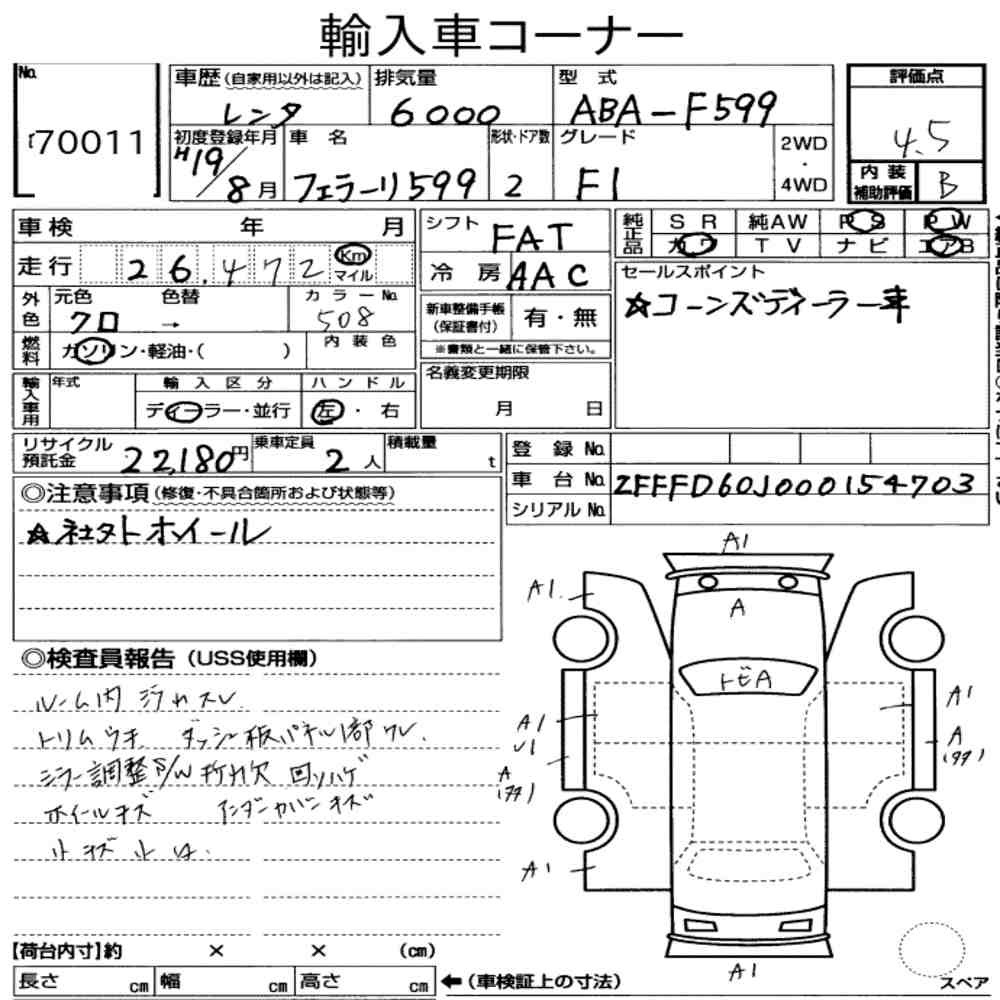 輸入車コーナー
No. 70011
車歴 (自家用以外は記入) レンタ
排気量 6000
型式 ABA-F599
評価点 4.5
内装補助評価 B
初度登録年月 H19/8月
車名 フェラーリ599
形状・ドア数 2
グレード F1
2WD・4WD
車検 年 月
走行 26,472 Km マイル
シフト FAT
冷房 AAC
純正品 SR 純AW PS PW
カワ TV ナビ エアB
セールスポイント
☆コーンズディーラー車
外色 元色 クロ 色替 → カラーNo. 508
燃料 ガソリン・軽油・( ) 内装色
新車整備手帳(保証書付) 有・無
※書類と一緒に保管下さい。
輸入車用 年式 輸入区分 ディーラー・並行 ハンドル 左・右
名義変更期限 月 日
リサイクル預託金 22,180円
乗車定員 2人
積載量 t
登録No.
車台No. ZFFFD60J000154703
シリアルNo.
◎注意事項 (修復・不具合箇所および状態等)
☆社外ホイール
◎検査員報告 (USS使用欄)
ルーム内 汚れスレ
トリムウキ ダッシュ板パネル1部ワレ.
ミラー調整S/W折れ欠 回リハゲ
ホイールキズ アンダーカバーキズ
小キズ小凹.
A1
A1.
A
トビA
A1
A1
A
A
A1
A1
【荷台内寸】約 × × (cm)
長さ cm 幅 cm 高さ cm
←(車検証上の寸法)
スペア